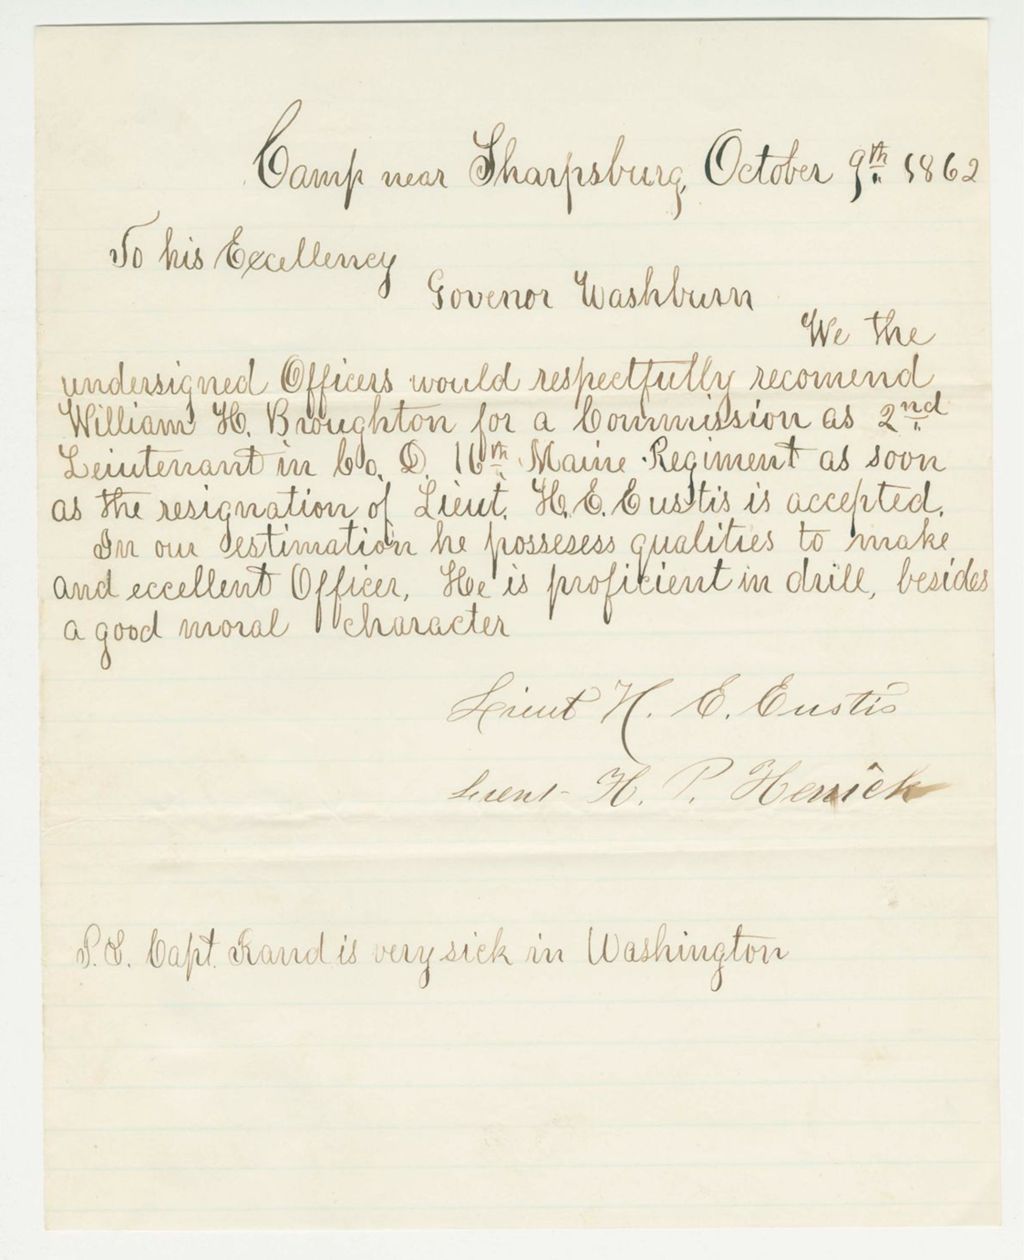 Camp near Sharpsburg, October 9th. 1862
To his Excellency
Govenor Washburn
We the
undersigned Officers would respectfully recomend
William H. Broughton for a Commission as 2nd.
Leiutenant in Co. D. 16th. Maine Regiment as soon
as the resignation of Lieut. H. E. Eustis is accepted.
In our estimation he possesess qualities to make
and eccellent Officer, He is proficient in drill, besides
a good moral character
Lieut H. E. Eustis
Lieut H. P. Herrick
P.S. Capt. Rand is very sick in Washington